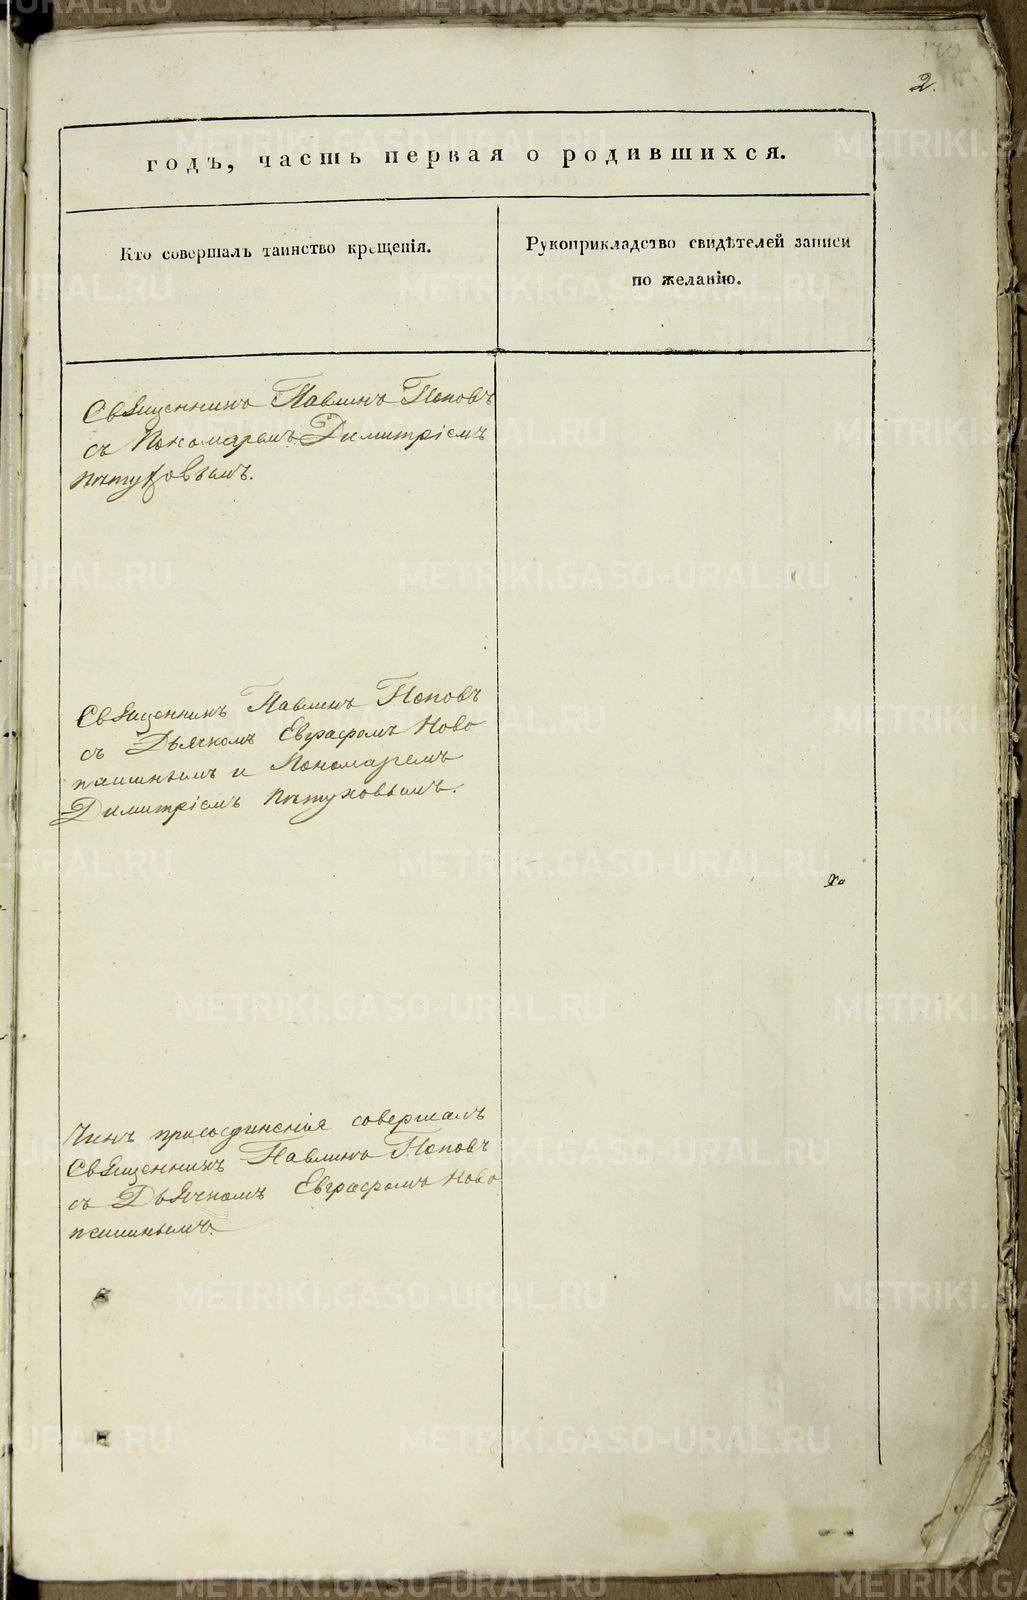 170
2.
годъ, часть первая о родившихся.
Кто совершалъ таинство крещенія.
Рукоприкладство свидѣтелей записи
по желанію.
Священникъ Павлинъ Поповъ
съ Пономаремъ Димитріемъ
Пѣтуховымъ.
Священникъ Павлинъ Поповъ
съ Дьячкомъ Евграфомъ Ново
пашинымъ и Пономаремъ
Димитріемъ Пѣтуховымъ.
Чинъ присоединенія совершалъ
Священникъ Павлинъ Поповъ
съ Дьячкомъ Евграфомъ Ново
пашинымъ.
METRIKI.GASO-URAL.RU